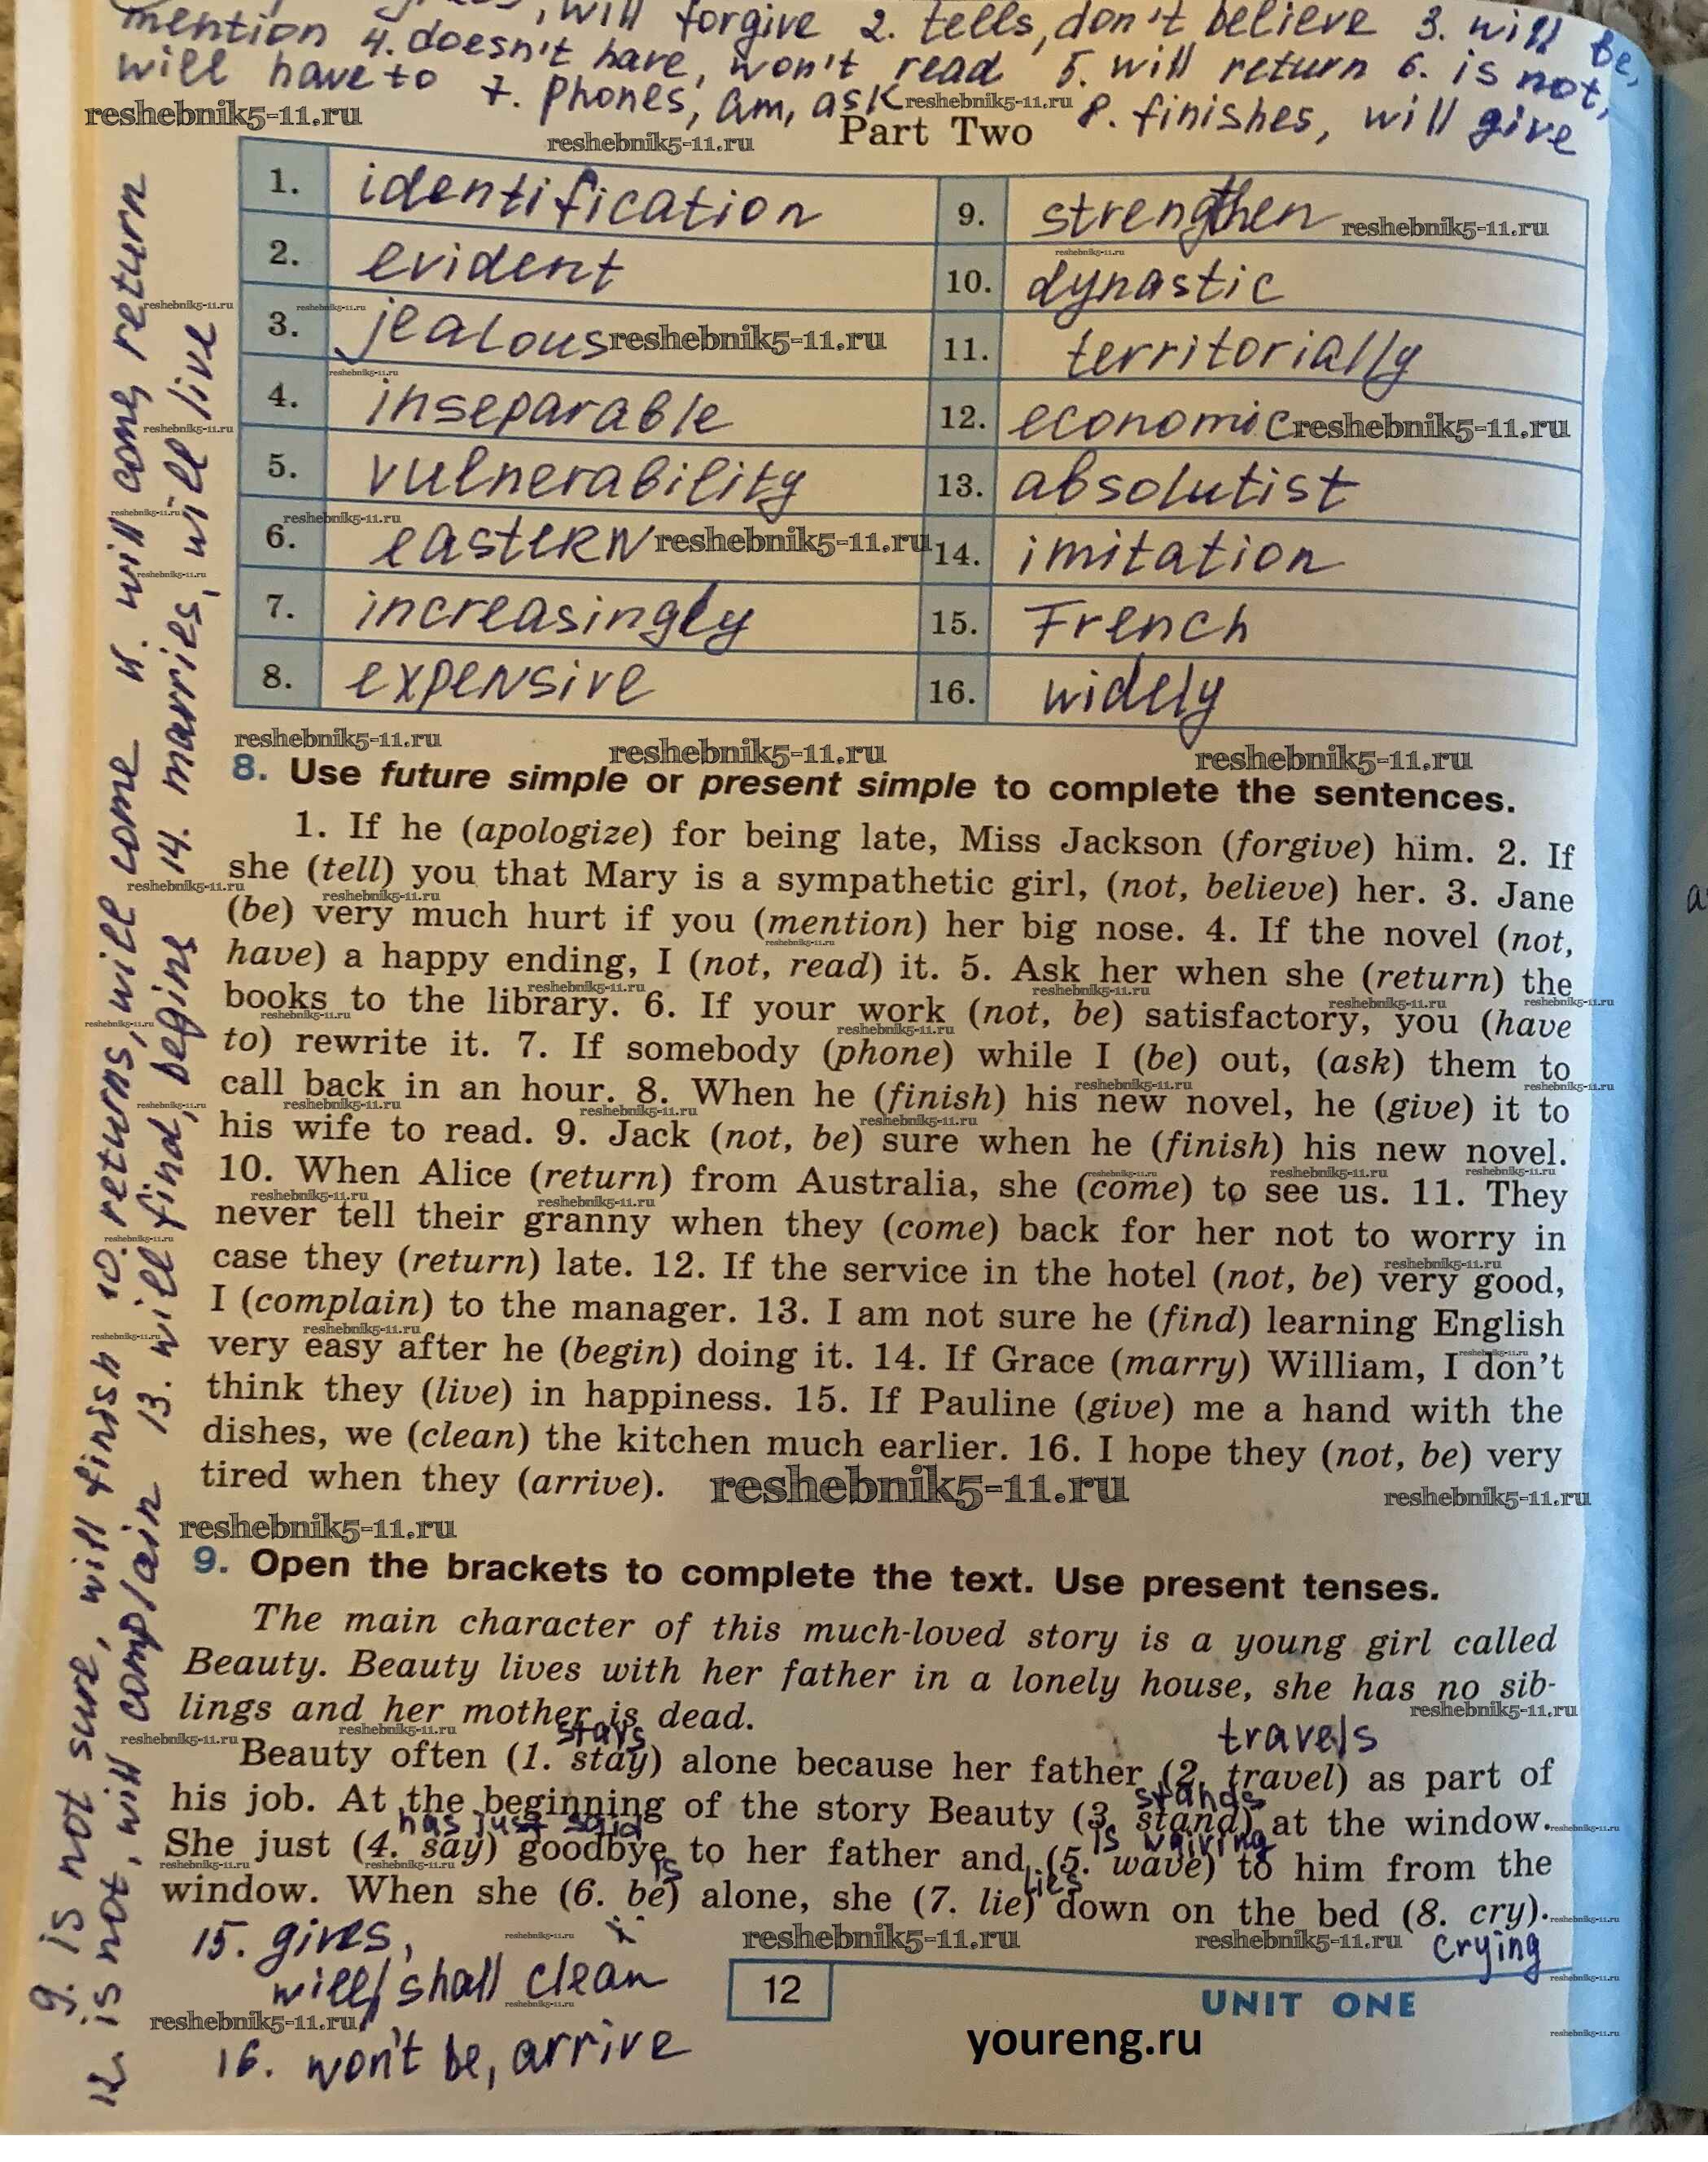 will forgive 2. tells, don't believe 3. will be,
mention 4. doesn't have, won't read 5. will return 6. is not,
will have to 7. phones, am, ask 8. finishes, will give
reshebnik5-11.ru
Part Two
1. identification
2. evident
3. jealous
4. inseparable
5. vulnerability
6. eastern
7. increasingly
8. expensive
9. strengthen
10. dynastic
11. territorially
12. economic
13. absolutist
14. imitation
15. French
16. widely
8. Use future simple or present simple to complete the sentences.
1. If he (apologize) for being late, Miss Jackson (forgive) him. 2. If
she (tell) you that Mary is a sympathetic girl, (not, believe) her. 3. Jane
(be) very much hurt if you (mention) her big nose. 4. If the novel (not,
have) a happy ending, I (not, read) it. 5. Ask her when she (return) the
books to the library. 6. If your work (not, be) satisfactory, you (have
to) rewrite it. 7. If somebody (phone) while I (be) out, (ask) them to
call back in an hour. 8. When he (finish) his new novel, he (give) it to
his wife to read. 9. Jack (not, be) sure when he (finish) his new novel.
10. When Alice (return) from Australia, she (come) to see us. 11. They
never tell their granny when they (come) back for her not to worry in
case they (return) late. 12. If the service in the hotel (not, be) very good,
I (complain) to the manager. 13. I am not sure he (find) learning English
very easy after he (begin) doing it. 14. If Grace (marry) William, I don't
think they (live) in happiness. 15. If Pauline (give) me a hand with the
dishes, we (clean) the kitchen much earlier. 16. I hope they (not, be) very
tired when they (arrive).
9. is not sure, will finish 10. returns, will come 11. will come, return
12. is not, will complain 13. will find, begins 14. marries, will live
9. Open the brackets to complete the text. Use present tenses.
The main character of this much-loved story is a young girl called
Beauty. Beauty lives with her father in a lonely house, she has no sib-
lings and her mother is dead.
stays travels
Beauty often (1. stay) alone because her father (2. travel) as part of
stands
his job. At the beginning of the story Beauty (3. stand) at the window.
has just said is waiving
She just (4. say) goodbye to her father and (5. wave) to him from the
is lies
window. When she (6. be) alone, she (7. lie) down on the bed (8. cry).
crying
15. gives,
will/shall clean
16. won't be, arrive
12
UNIT ONE
youreng.ru